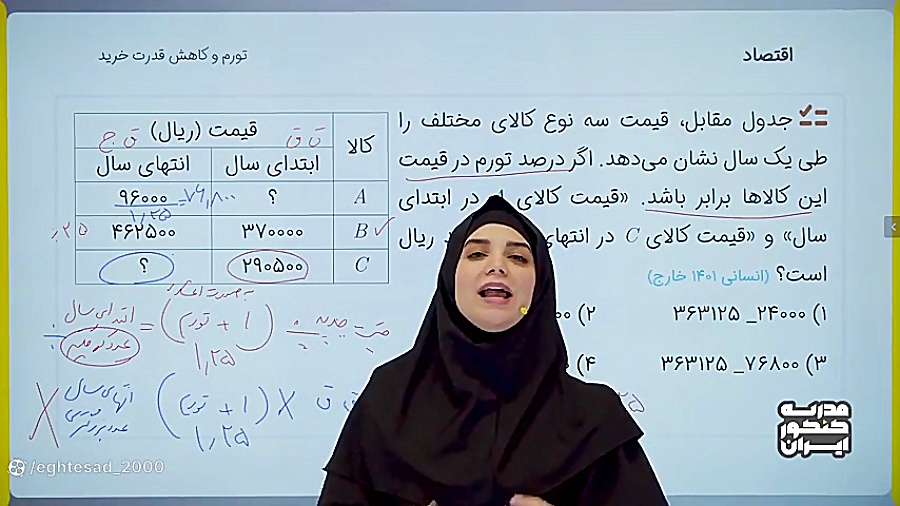 اقتصاد
تورم و کاهش قدرت خرید
جدول مقابل، قیمت سه نوع کالای مختلف را
طی یک سال نشان می‌دهد. اگر درصد تورم در قیمت
این کالاها برابر باشد. «قیمت کالای در ابتدای
سال» و «قیمت کالای C در انتهای ریال
است؟ (انسانی ۱۴۰۱ خارج)
۱) ۲۴۰۰۰ _ ۳۶۳۱۲۵
۲)
۳) ۷۶۸۰۰ _ ۳۶۳۱۲۵
۴)
کالا قیمت (ریال) ق ق ق ج
ابتدای سال انتهای سال
A ؟ ۹۶۰۰۰ = ۷۶,۸۰۰
۱,۲۵
B ۳۷۰۰۰۰ ۴۶۲۵۰۰ ٪۲۵
C ۲۹۰۵۰۰ ؟
(۱ + تورم) = ابتدای سال
۱,۲۵
(۱ + تورم) × ق ق
انتهای سال
۱,۲۵
مدرسه
کنکور
ایران
/eghtesad_2000